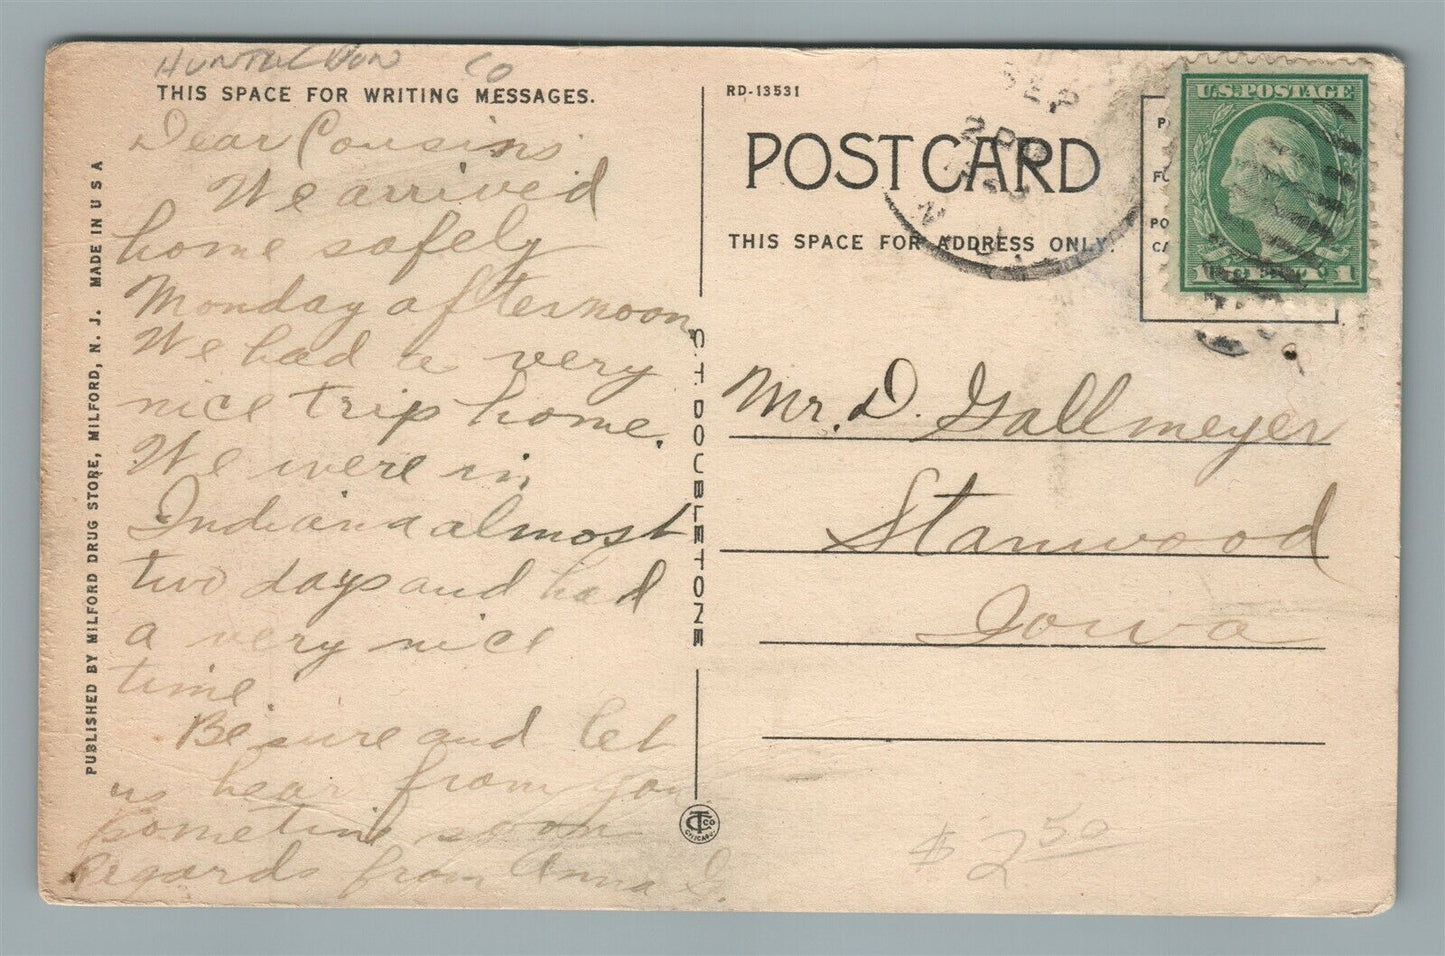 HUNTERDON CO
THIS SPACE FOR WRITING MESSAGES.
Dear Cousins
We arrived
home safely
Monday afternoon
We had a very
nice trip home.
We were in
Indiana almost
two days and had
a very nice
time
Be sure and let
us hear from you
sometime soon
Regards from Anna G.
PUBLISHED BY MILFORD DRUG STORE, MILFORD, N. J. MADE IN U S A
C. T. DOUBLETONE
CT CO
CHICAGO
RD-13531
POST CARD
THIS SPACE FOR ADDRESS ONLY.
SEP
20
N. J.
U.S. POSTAGE
1 1
Mr. D. Gallmeyer
Stanwood
Iowa
$ 2 50